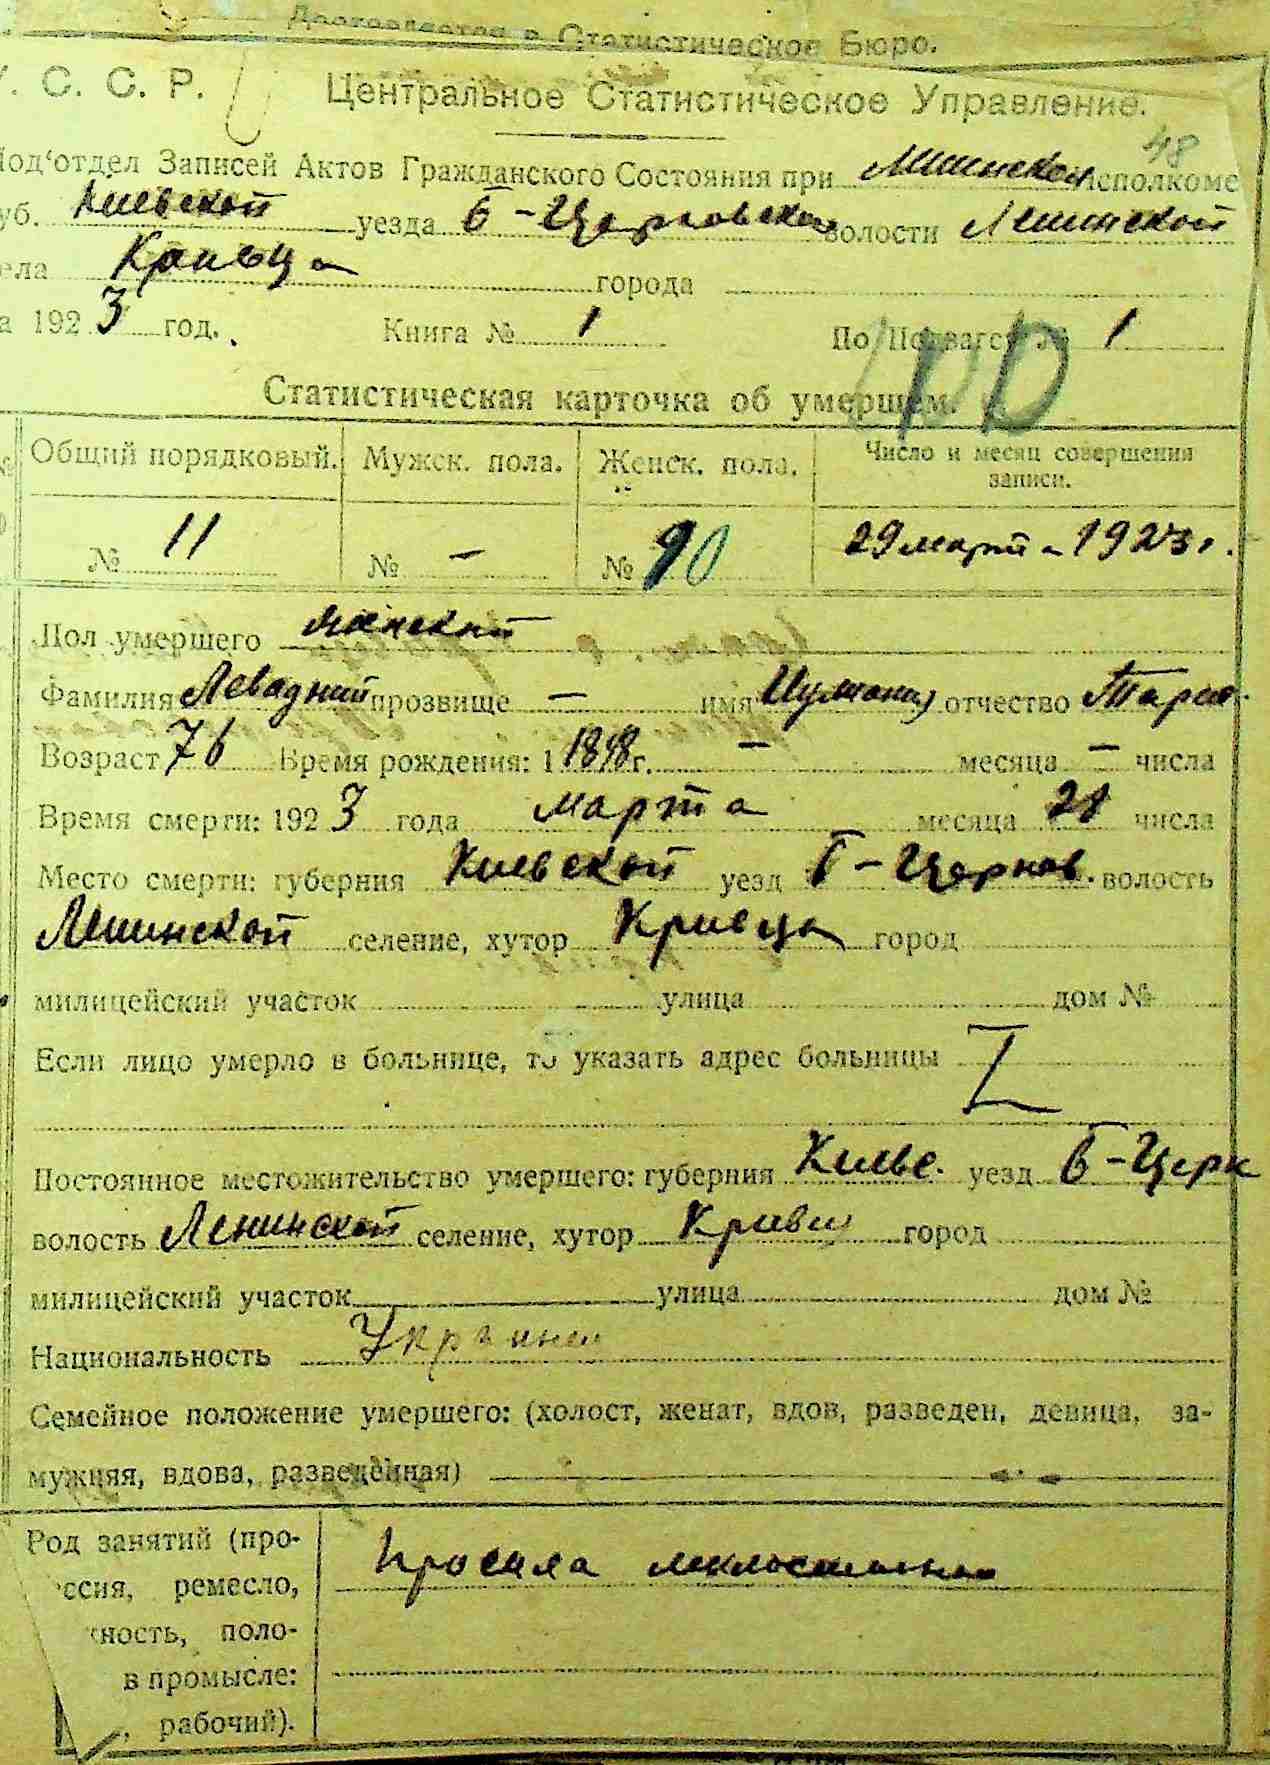 Доставляется в Статистическое Бюро.
У. С. С. Р. Центральное Статистическое Управление.
48
Под‘отдел Записей Актов Гражданского Состояния при исполкоме
губ. Киевской уезда Б-Церковской волости Ленинской
села Кривца города
за 1923 год. Книга № 1 По 1
Статистическая карточка об умершем.
Общий порядковый. Мужск. пола. Женск. пола. Число и месяц совершения записи.
№ 11 № — № 10 29 марта 1923 г.
Пол умершего женский
Фамилия Левадний прозвище — имя отчество
Возраст 76 Время рождения: 1 г. — месяца — числа
Время смерти: 1923 года марта месяца 28 числа
Место смерти: губерния Киевской уезд Б-Церков. волость
Ленинской селение, хутор Кривца город
милицейский участок улица дом №
Если лицо умерло в больнице, то указать адрес больницы
Постоянное местожительство умершего: губерния Киевс. уезд Б-Церк
волость Ленинской селение, хутор город
милицейский участок улица дом №
Национальность
Семейное положение умершего: (холост, женат, вдов, разведен, девица, за-
мужняя, вдова, разведенная)
Род занятий (про- Просила милостыню
ессия, ремесло,
ность, поло-
в промысле:
, рабочий).